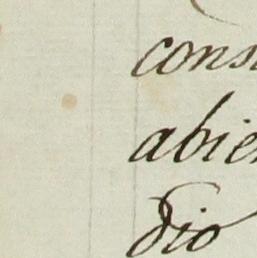 cons
abie
dio